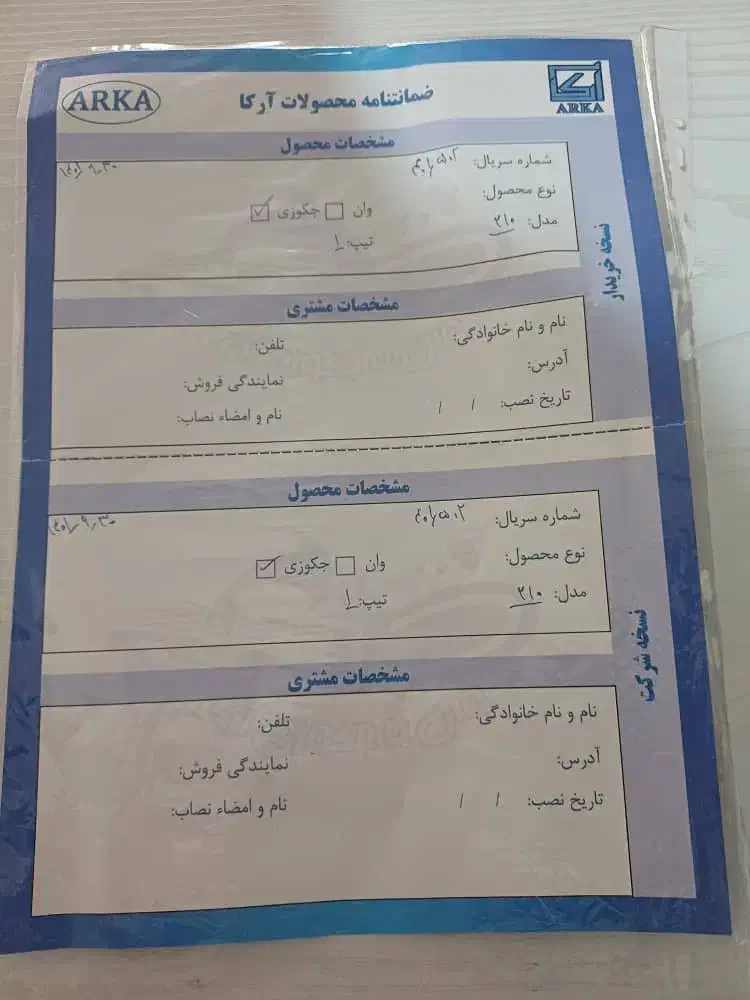 ARKA
ضمانتنامه محصولات آرکا
ARKA
مشخصات محصول
شماره سریال:
۱۴۰۱٫۹٫۳۰
نوع محصول:
وان ☐ جکوزی ☑
مدل: ۲۱۰
تیپ: ۱
نسخه خریدار
مشخصات مشتری
نام و نام خانوادگی:
تلفن:
آدرس:
نمایندگی فروش:
تاریخ نصب: / /
نام و امضاء نصاب:
مشخصات محصول
شماره سریال:
۱۴۰۱٫۹٫۳۰
نوع محصول:
وان ☐ جکوزی ☑
مدل: ۲۱۰
تیپ: ۱
نسخه شرکت
مشخصات مشتری
نام و نام خانوادگی:
تلفن:
آدرس:
نمایندگی فروش:
تاریخ نصب: / /
نام و امضاء نصاب: